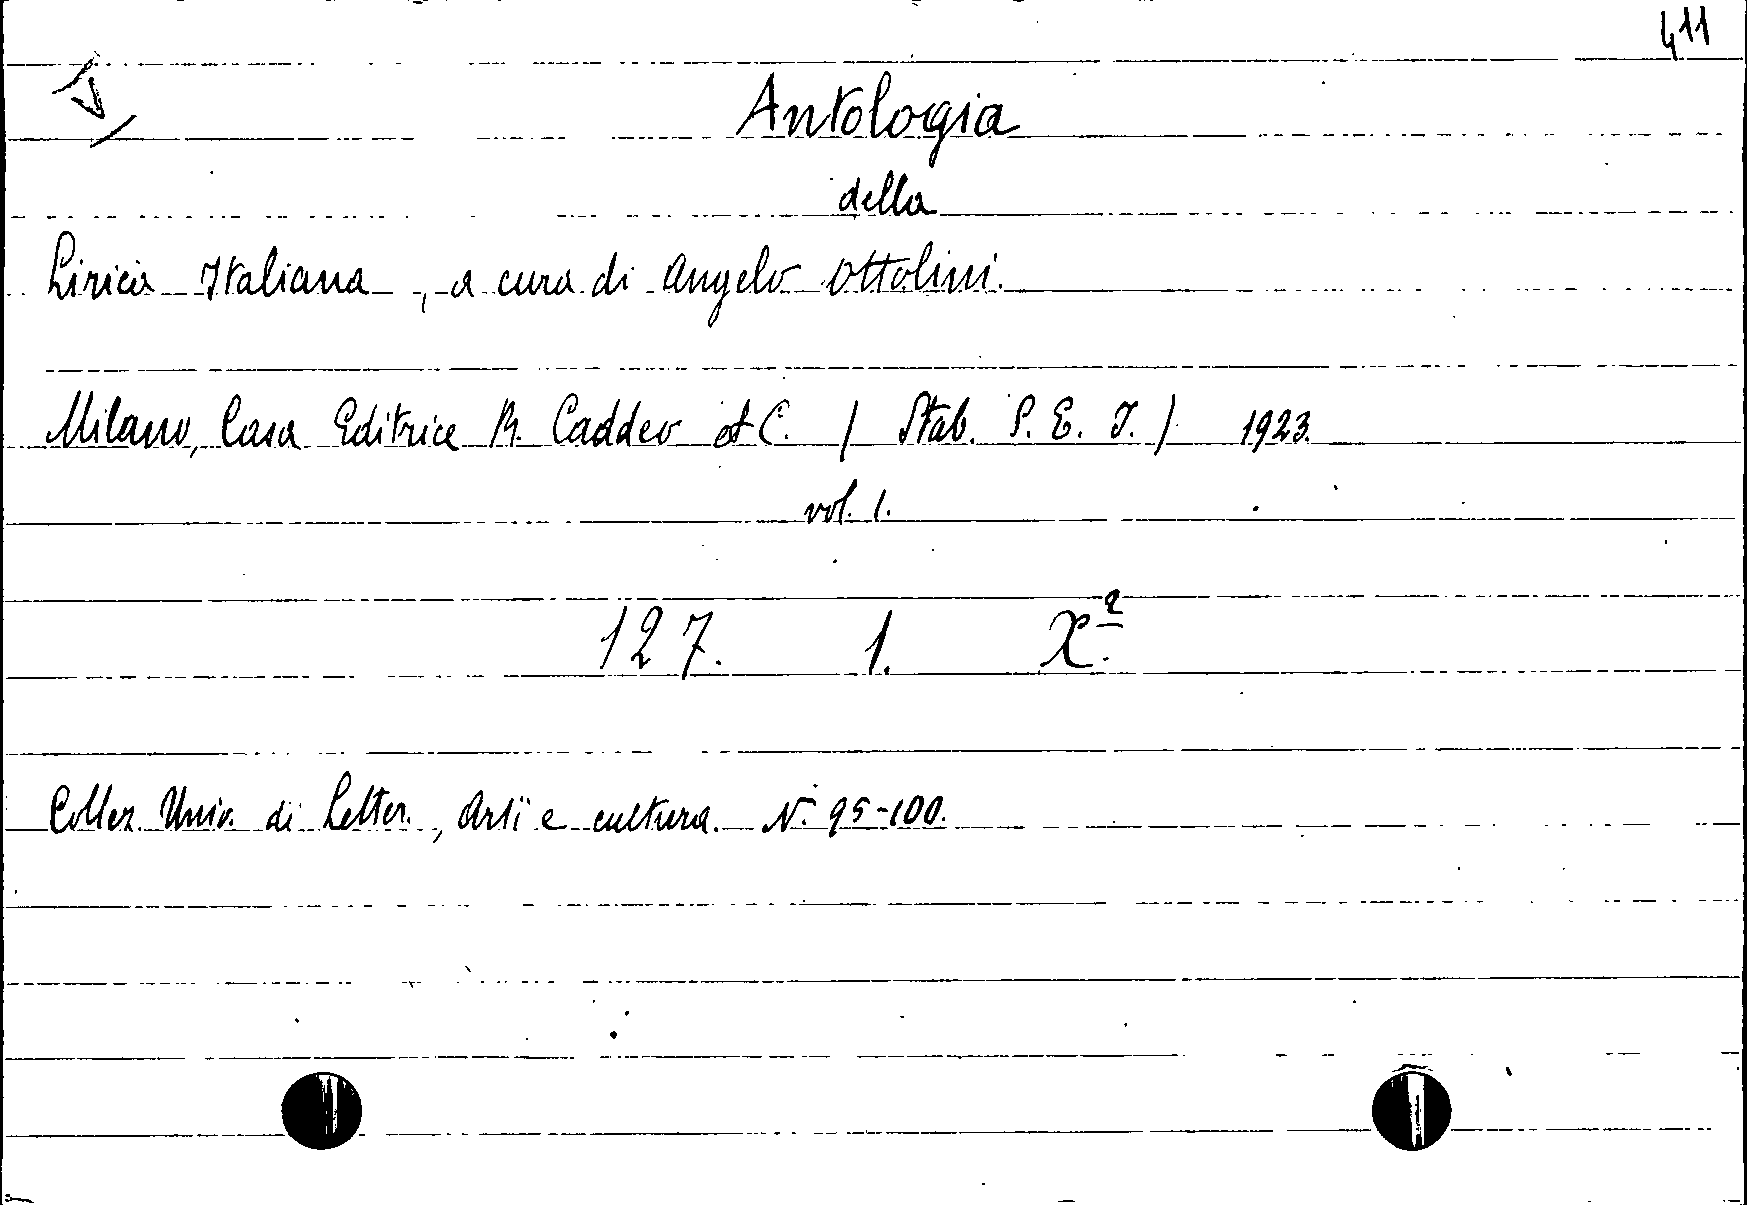 411
Antologia
della
Lirica Italiana, a cura di Angelo Ottolini.
Milano, Casa Editrice R. Caddeo et C. / Stab. S. E. T. / 1923.
vol. 1.
127. 1. X.2
Collez. Univ. di Letter., Arti e cultura. N. 95-100.